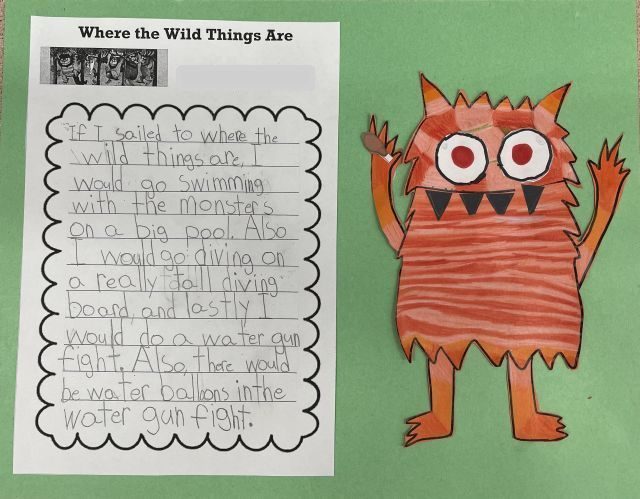 Where the Wild Things Are
If I sailed to where the
wild things are, I
would go swimming
with the monsters
on a big pool. Also
I would go diving on
a really tall diving
board, and lastly I
would do a water gun
fight. Also, there would
be water balloons in the
water gun fight.